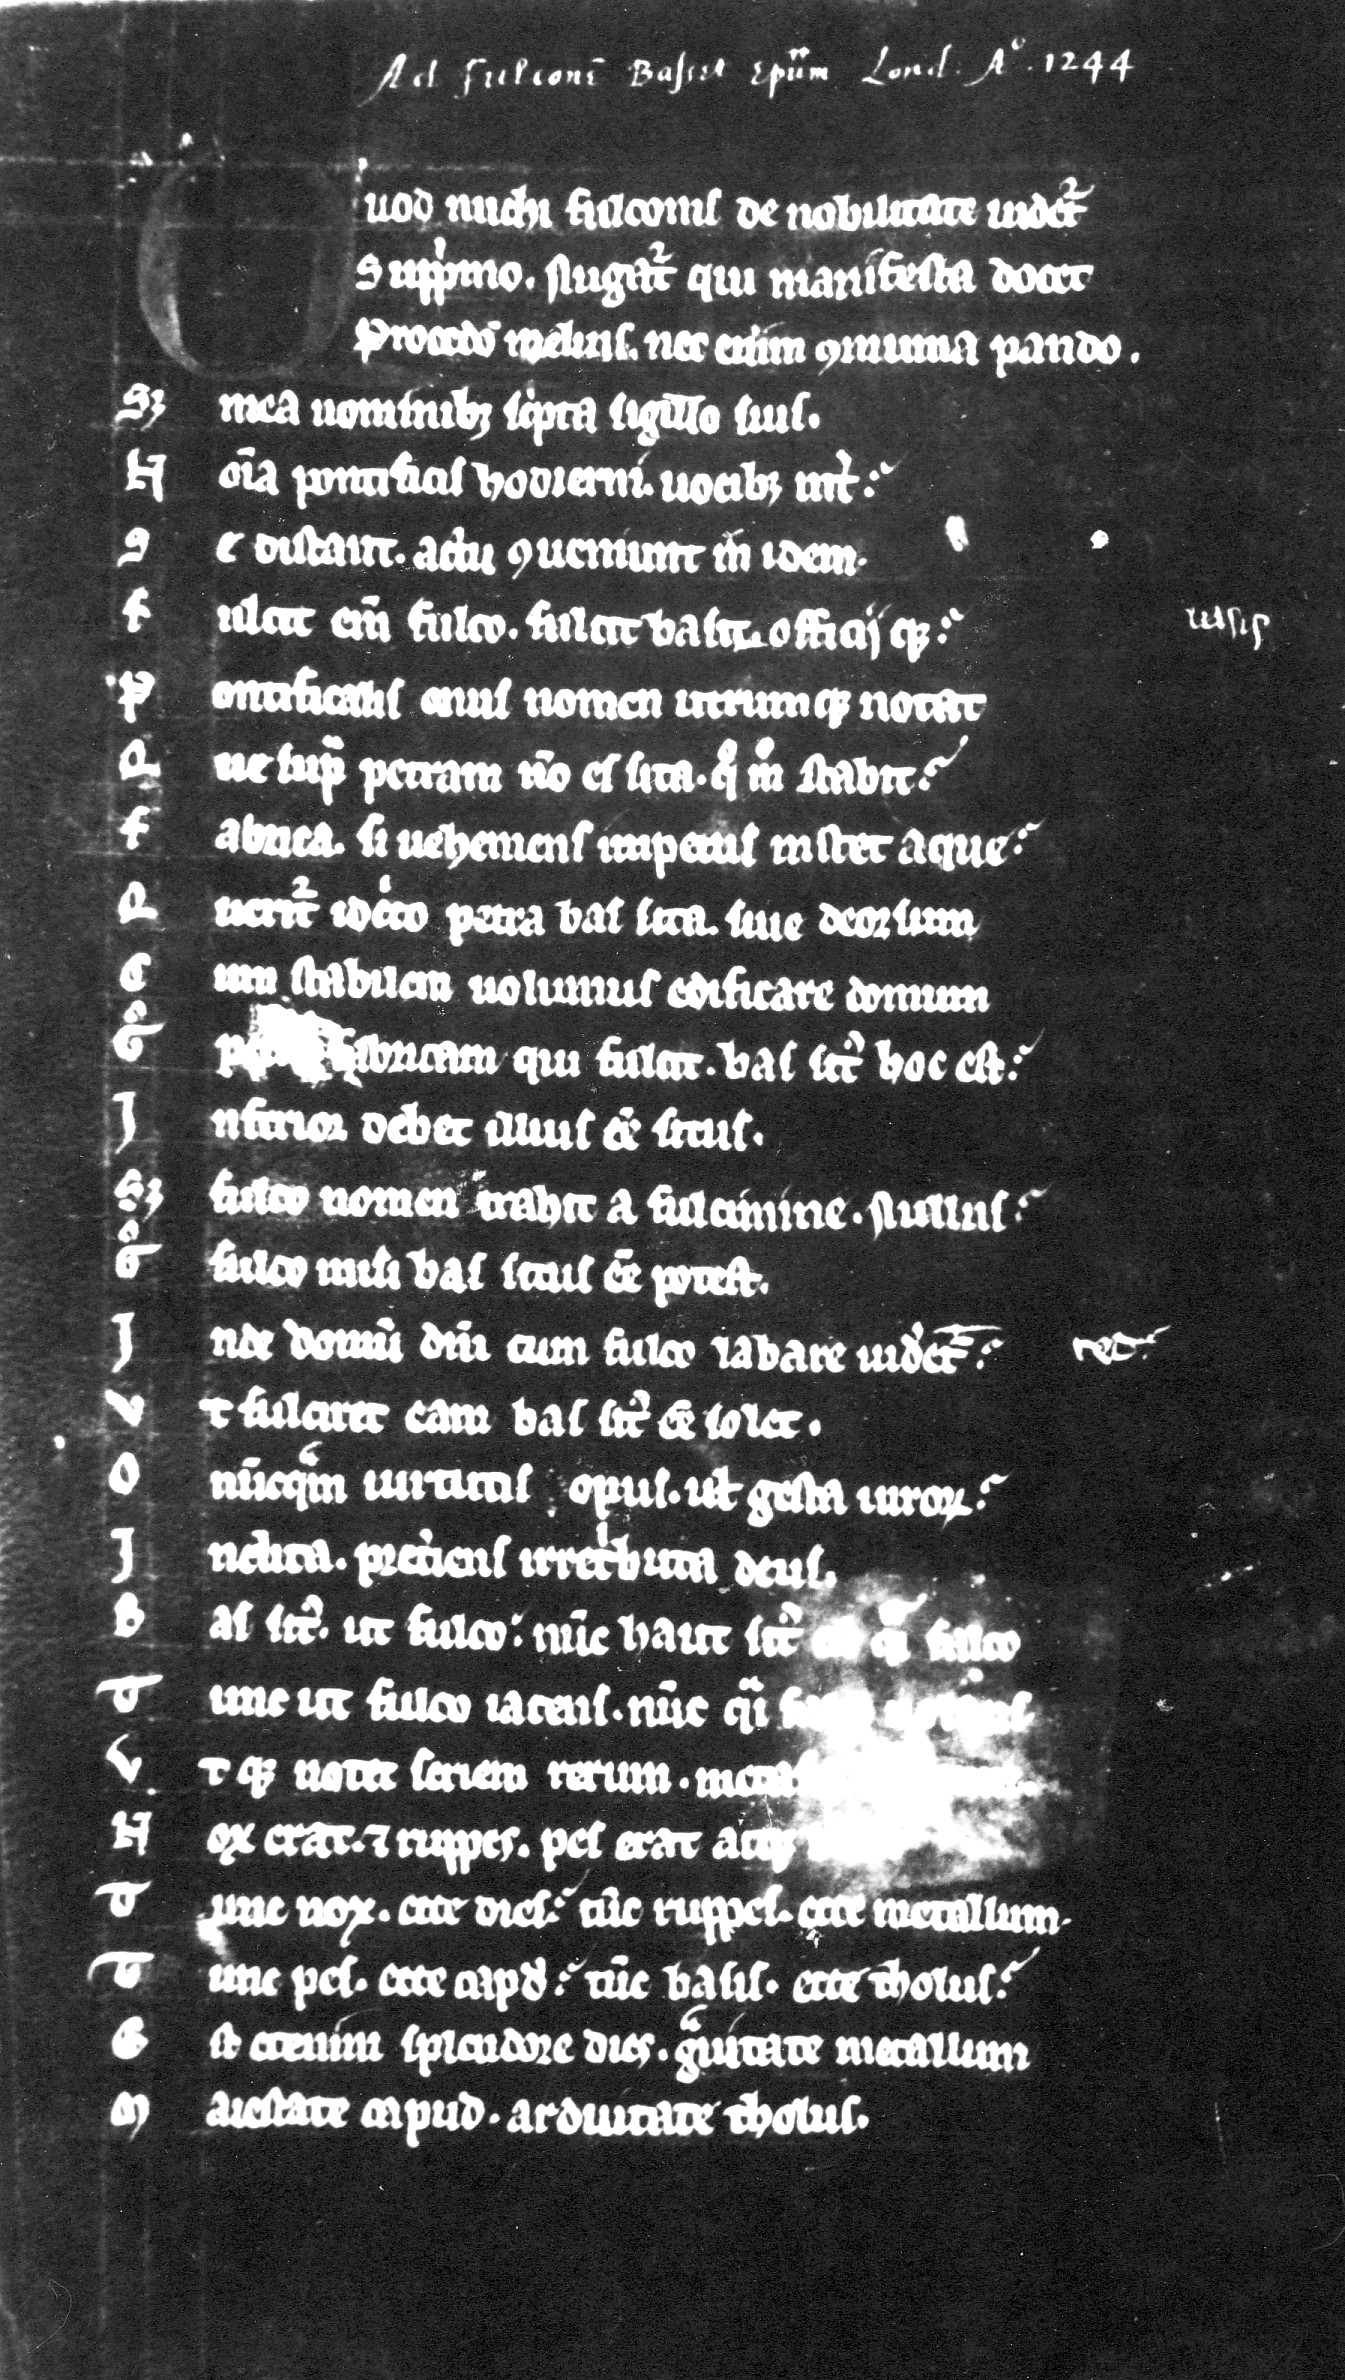 Ad fulconē Basset Ep̄um Lond. Aº. 1244
Quod michi fulconis de nobilitate uidet᷑
Supp̄mo. nugat᷑ qui manifesta docet
Procedo meli᷑. nec enim ꝯmunia pando.
Sꝫ mea nominibꝫ sc̓pta sigillo suis.
Noı̄a pontificis hodierni uocibꝫ int̓
Se distant. actu ꝯueniunt m̄ idem.
fulcit em̄ fulco. fulcit basis. officijqꝫ
Pontificalis onus nomen utrumqꝫ notat
Que sup̄ petram nō est sita. qͦ mͦ stabit
fabrica. si uehemens impetus instet aque
Querit᷑ idcͥco petra bas sita. siue deorsum
Cum stabilem uolumus edificare domum
Ergͦ fabricam qui fulcit. bas sit᷑ hoc est
Inferior debet illius eē situs.
Sꝫ fulco nomen trahit a fulcimine. nullus
Ergͦ fulco nisi bas situs eē potest.
Inde domū dn̄i cum fulco labare uidet̓
Vt fulciret eam bas sit᷑ & solet.
O nūcqͣm uirtutis opus. uel gesta uiroꝝ
Inclita. pret̓iens irretͥbuta deus.
Bas sit᷑. ut fulco. nūc haut sit᷑ qͣi fulco
Tunc ut fulco iacens. nūc qͣi
Vtqꝫ notet seriem rerum.
Nox erat. ⁊ ruppes. pes erat
Tunc nox. ecce dies. tūc ruppes. ecce metallum.
Tunc pes. ecce capud. tūc basis. ecce tholus.
Est etenim splendore dies. gͣuitate metallum
Maiestate capud. arduitate tholus.